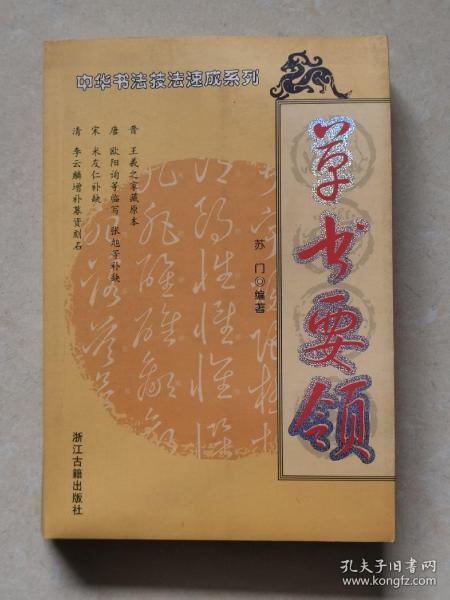 中华书法技法速成系列
草书要领
苏门◎编著
晋 王羲之家藏原本
唐 欧阳询等临写 张旭等补缺
宋 米友仁补缺
清 李云麟增补募资刻石
浙江古籍出版社
孔夫子旧书网
www.kongfz.com